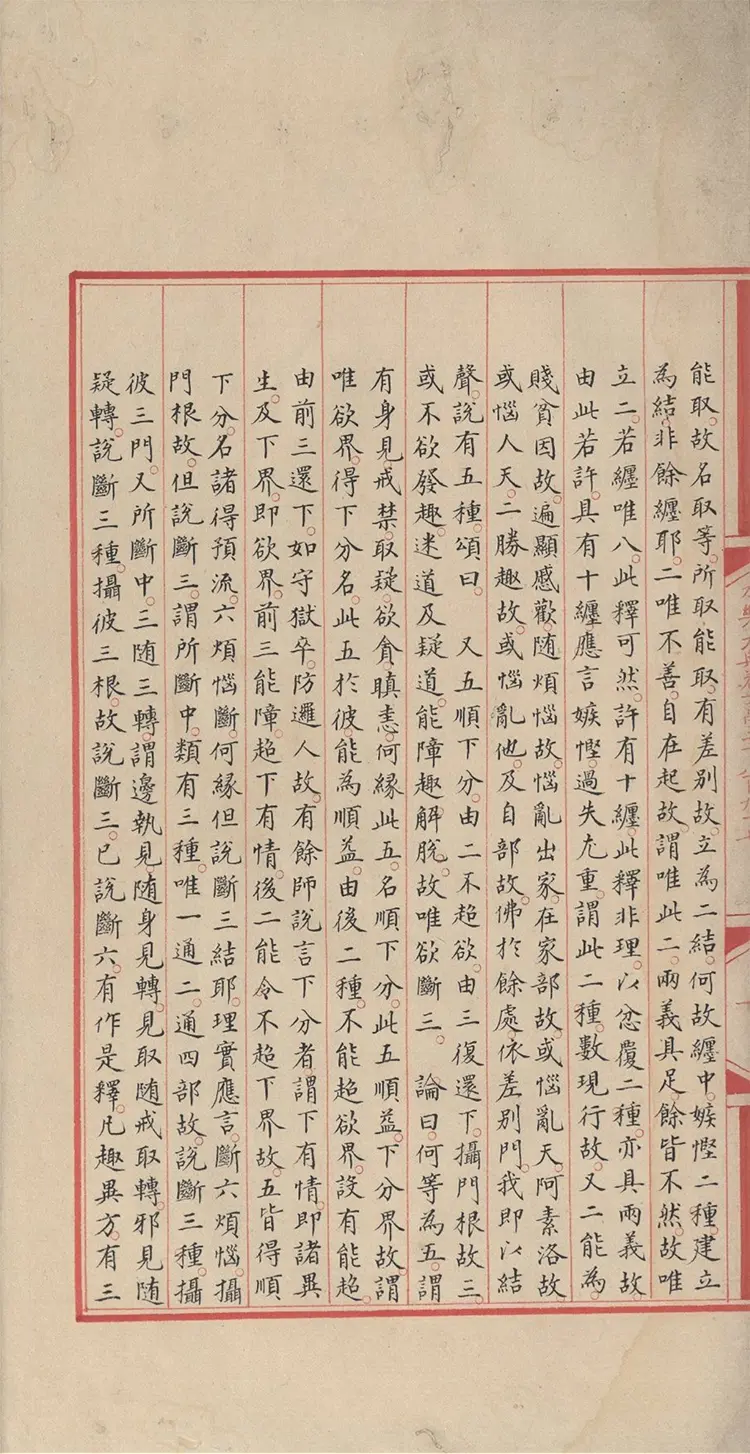 能取。故名取等。所取能取。有差別故。立為二結。何故纏中。嫉慳二種。建立
為結。非餘纏耶。二唯不善。自在起故。謂唯此二。兩義具足。餘皆不然。故唯
立二。若纏唯八。此釋可然。許有十纏。此釋非理。以忿覆二種。亦具兩義故。
由此若許。具有十纏應言嫉慳。過失尤重。謂此二種。數現行故。又二能為
賤貧因故。遍顯慼歡。随煩惱故。惱亂出家。在家部故。或惱亂天。阿素洛故
或惱人天。二勝趣故。或惱亂他。及自部故。佛於餘處。依差別門。我即以結
聲。說有五種。頌曰。 又五順下分。由二不超欲。由三復還下。攝門根故三。
或不欲發趣。迷道及疑道。能障趣解脫。故唯欲斷三。 論曰。何等為五。謂
有身見。戒禁。取疑。欲貪瞋恚。何緣此五。名順下分。此五順益。下分界故。謂
唯欲界。得下分名。此五於彼。能為順益。由後二種。不能超欲界。設有能超。
由前三還下。如守獄卒。防邏人故。有餘師說言下分者。謂下有情。即諸異
生。及下界。即欲界。前三能障。超下有情。後二能令不超下界故。五皆得順
下分。名諸得預流。六煩惱斷。何緣但說斷三結耶。理實應言。斷六煩惱。攝
門根故。但說斷三。謂所斷中。類有三種。唯一通二。通四部故。說斷三種。攝
彼三門。又所斷中。三随三轉。謂邊執見。随身見轉。見取随戒取轉。邪見随
疑轉。說斷三種。攝彼三根。故說斷三。已說斷六。有作是釋。凡趣異方。有三